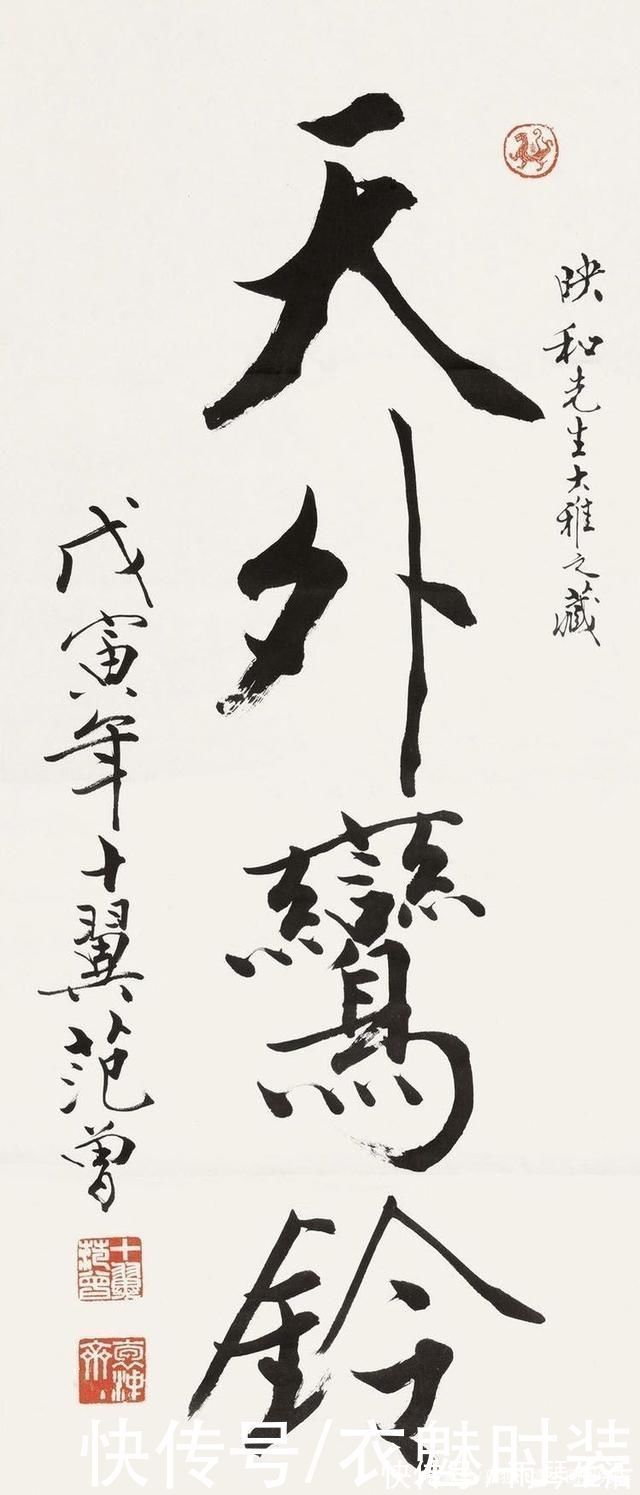 映和先生大雅之藏
天外鸞鈴
戊寅年十翼范曾
十翼范曾
快传号/衣魅时装